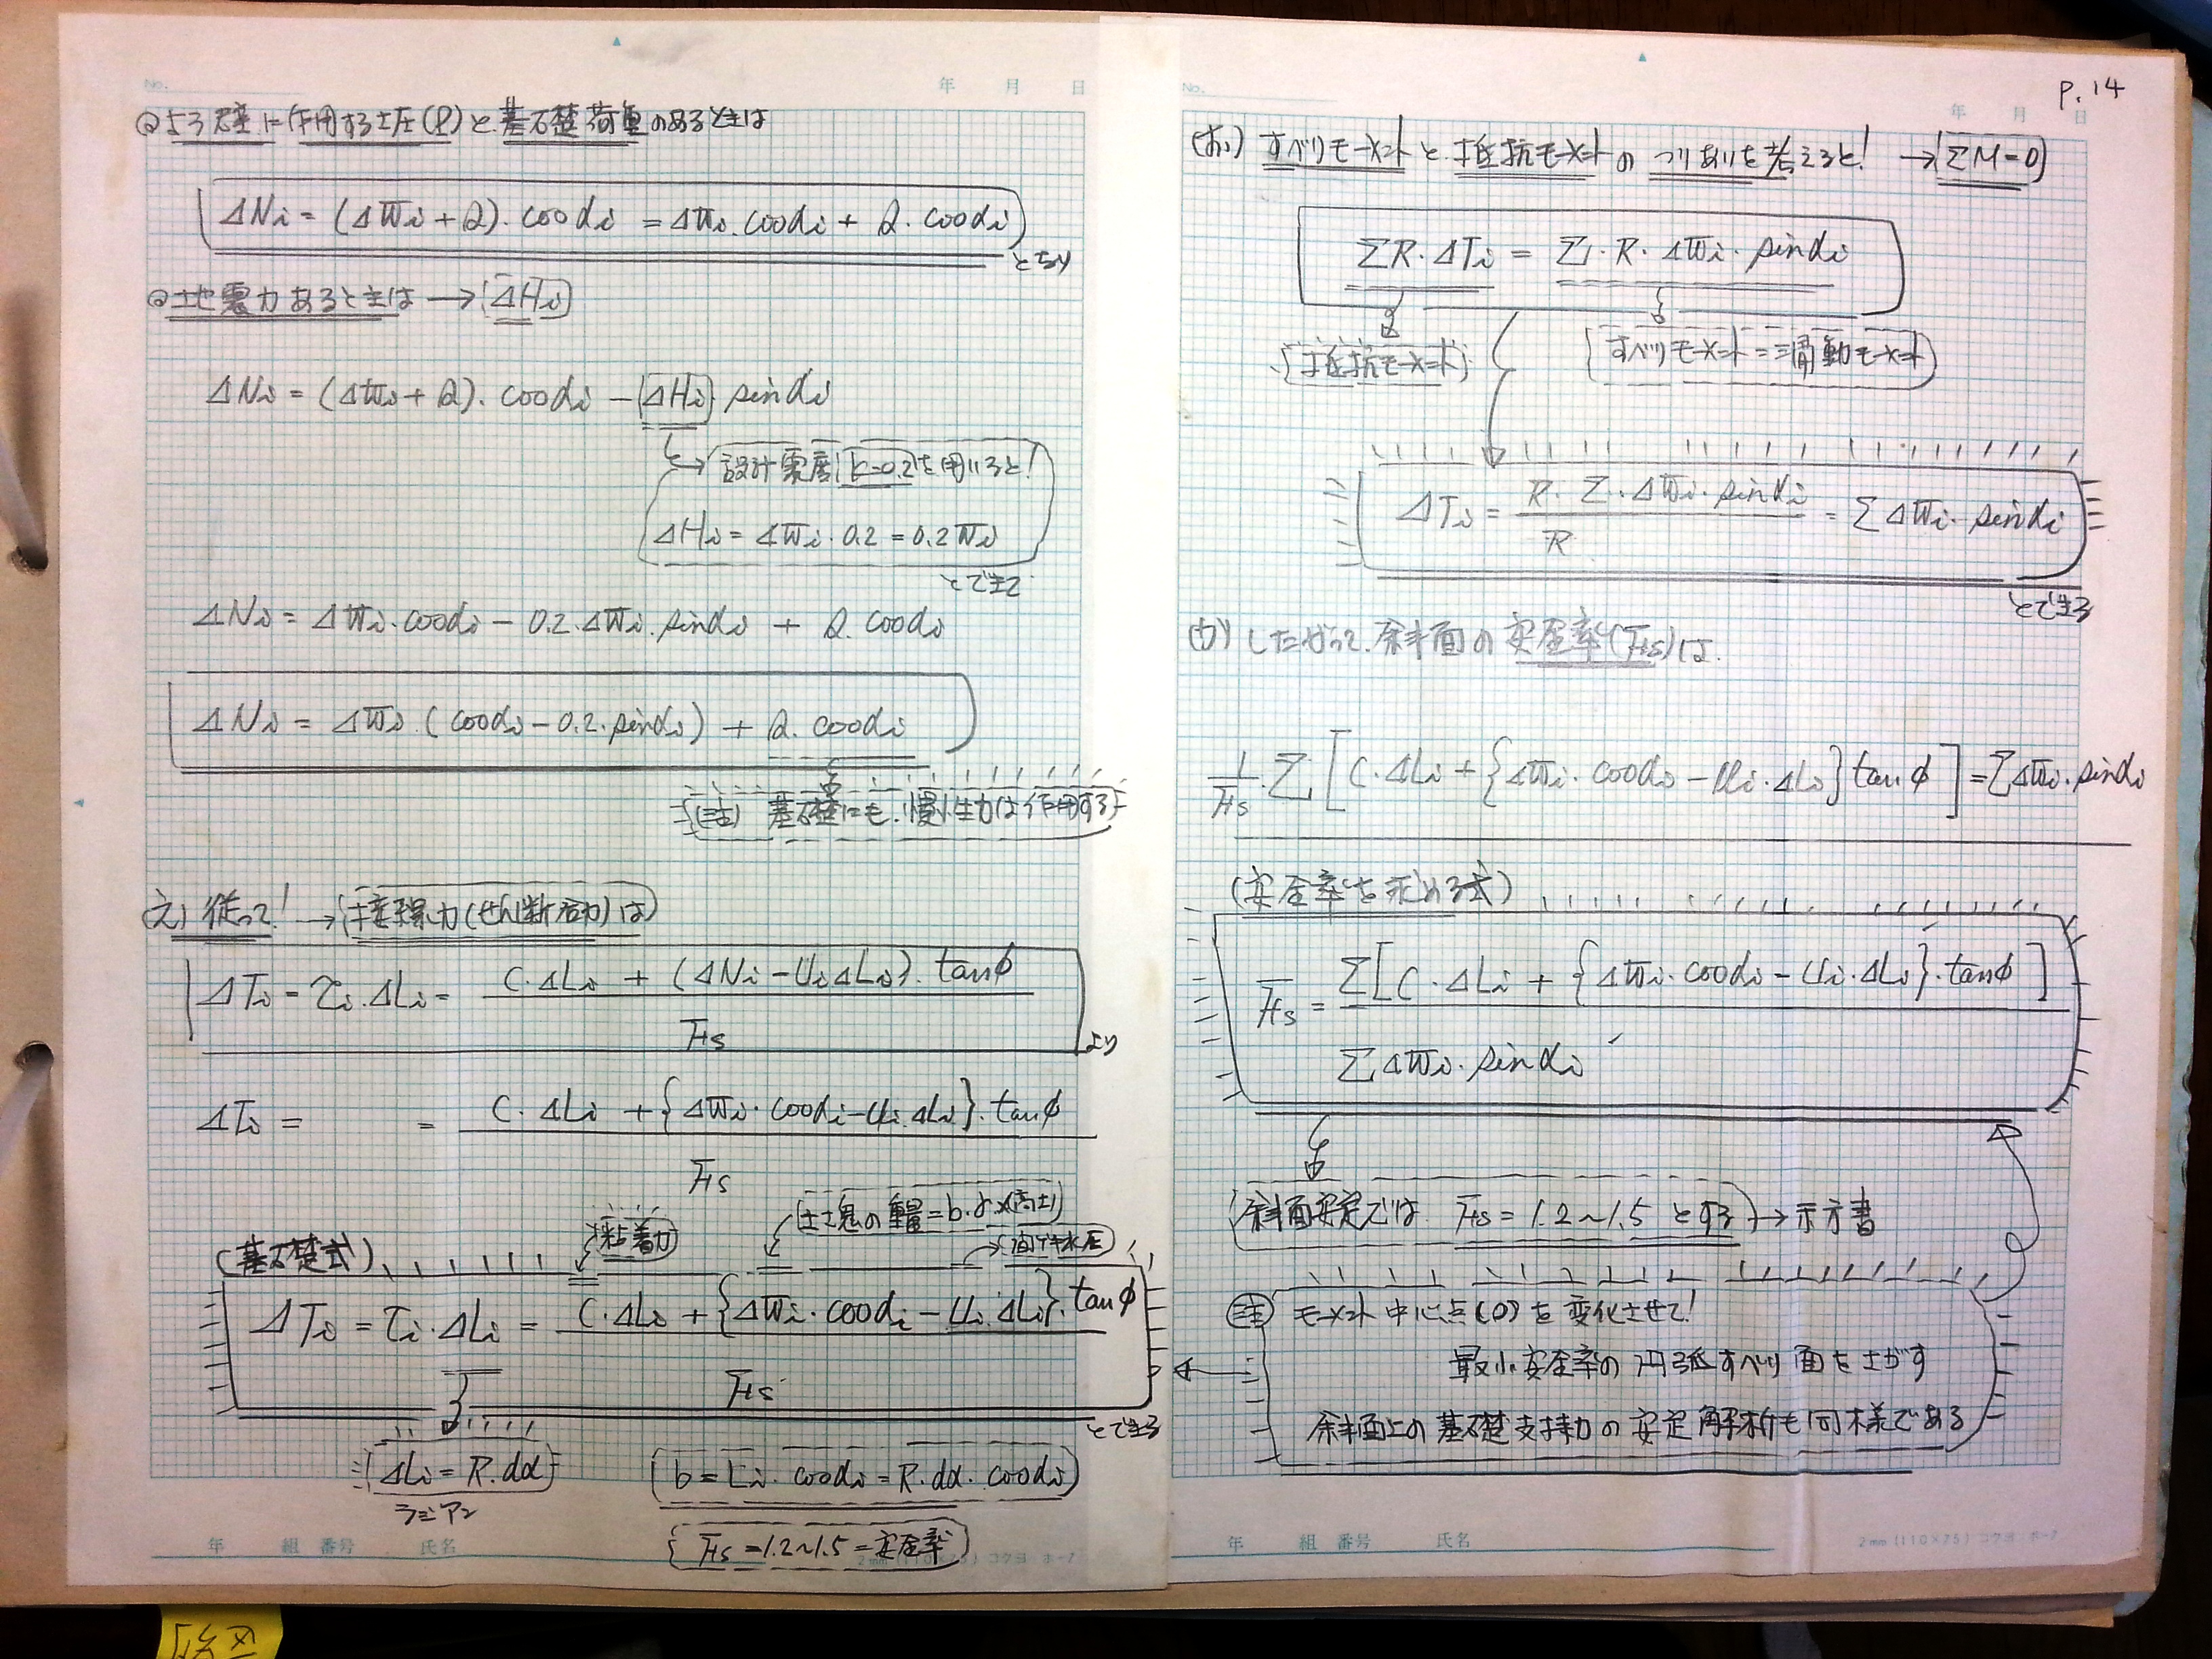 No. 年 月 日
よう壁に作用する土圧(P)と基礎荷重のあるときは
ΔNi = (ΔWi + Q)・cosαi = ΔWi・cosαi + Q・cosαi
となり
地震力あるときは → (ΔHi)
ΔNi = (ΔWi + Q)・cosαi − (ΔHi) sinαi
→ 設計震度 k=0.2 を用いると!
ΔHi = ΔWi・0.2 = 0.2Wi
とできて
ΔNi = ΔWi・cosαi − 0.2・ΔWi・sinαi + Q・cosαi
ΔNi = ΔWi・(cosαi − 0.2・sinαi) + Q・cosαi
(註) 基礎にも、慣性力は作用する
(え) 従って! → 接線力(せん断応力)は
ΔTi = τi・ΔLi = C・ΔLi + (ΔNi − UiΔLi)・tanφ / Fs
より
ΔTi = = C・ΔLi + {ΔWi・cosαi − Ui・ΔLi}・tanφ / Fs
粘着力
土塊の重量 = b・γ×(高さ)
間ゲキ水圧
(基礎式)
ΔTi = τi・ΔLi = C・ΔLi + {ΔWi・cosαi − Ui・ΔLi}・tanφ / Fs
とできる
ΔLi = R・dα
ラジアン
b = Li・cosαi = R・dα・cosαi
Fs = 1.2〜1.5 = 安全率
年 組 番号 氏名
2mm (110×75) コクヨ ホ-7
P.14
No. 年 月 日
(お) すべりモーメントと抵抗モーメントのつりあいを考えると! → (ΣM=0)
ΣR・ΔTi = Σ・R・ΔWi・sinαi
抵抗モーメント
すべりモーメント = 滑動モーメント
ΔTi = R・Σ・ΔWi・sinαi / R = ΣΔWi・sinαi
とできる
(か) したがって、斜面の安全率(Fs)は、
1/Fs・Σ[C・ΔLi + {ΔWi・cosαi − Ui・ΔLi} tanφ] = ΣΔWi・sinαi
(安全率を求める式)
Fs = Σ[C・ΔLi + {ΔWi・cosαi − Ui・ΔLi}・tanφ] / ΣΔWi・sinαi
斜面安定では Fs = 1.2〜1.5 とする → 示方書
註 モーメント中心点(O)を変化させて!
最小安全率の円弧すべり面をさがす
斜面上の基礎支持力の安定解析も同様である
年 組 番号 氏名
2mm (110×75) コクヨ ホ-7